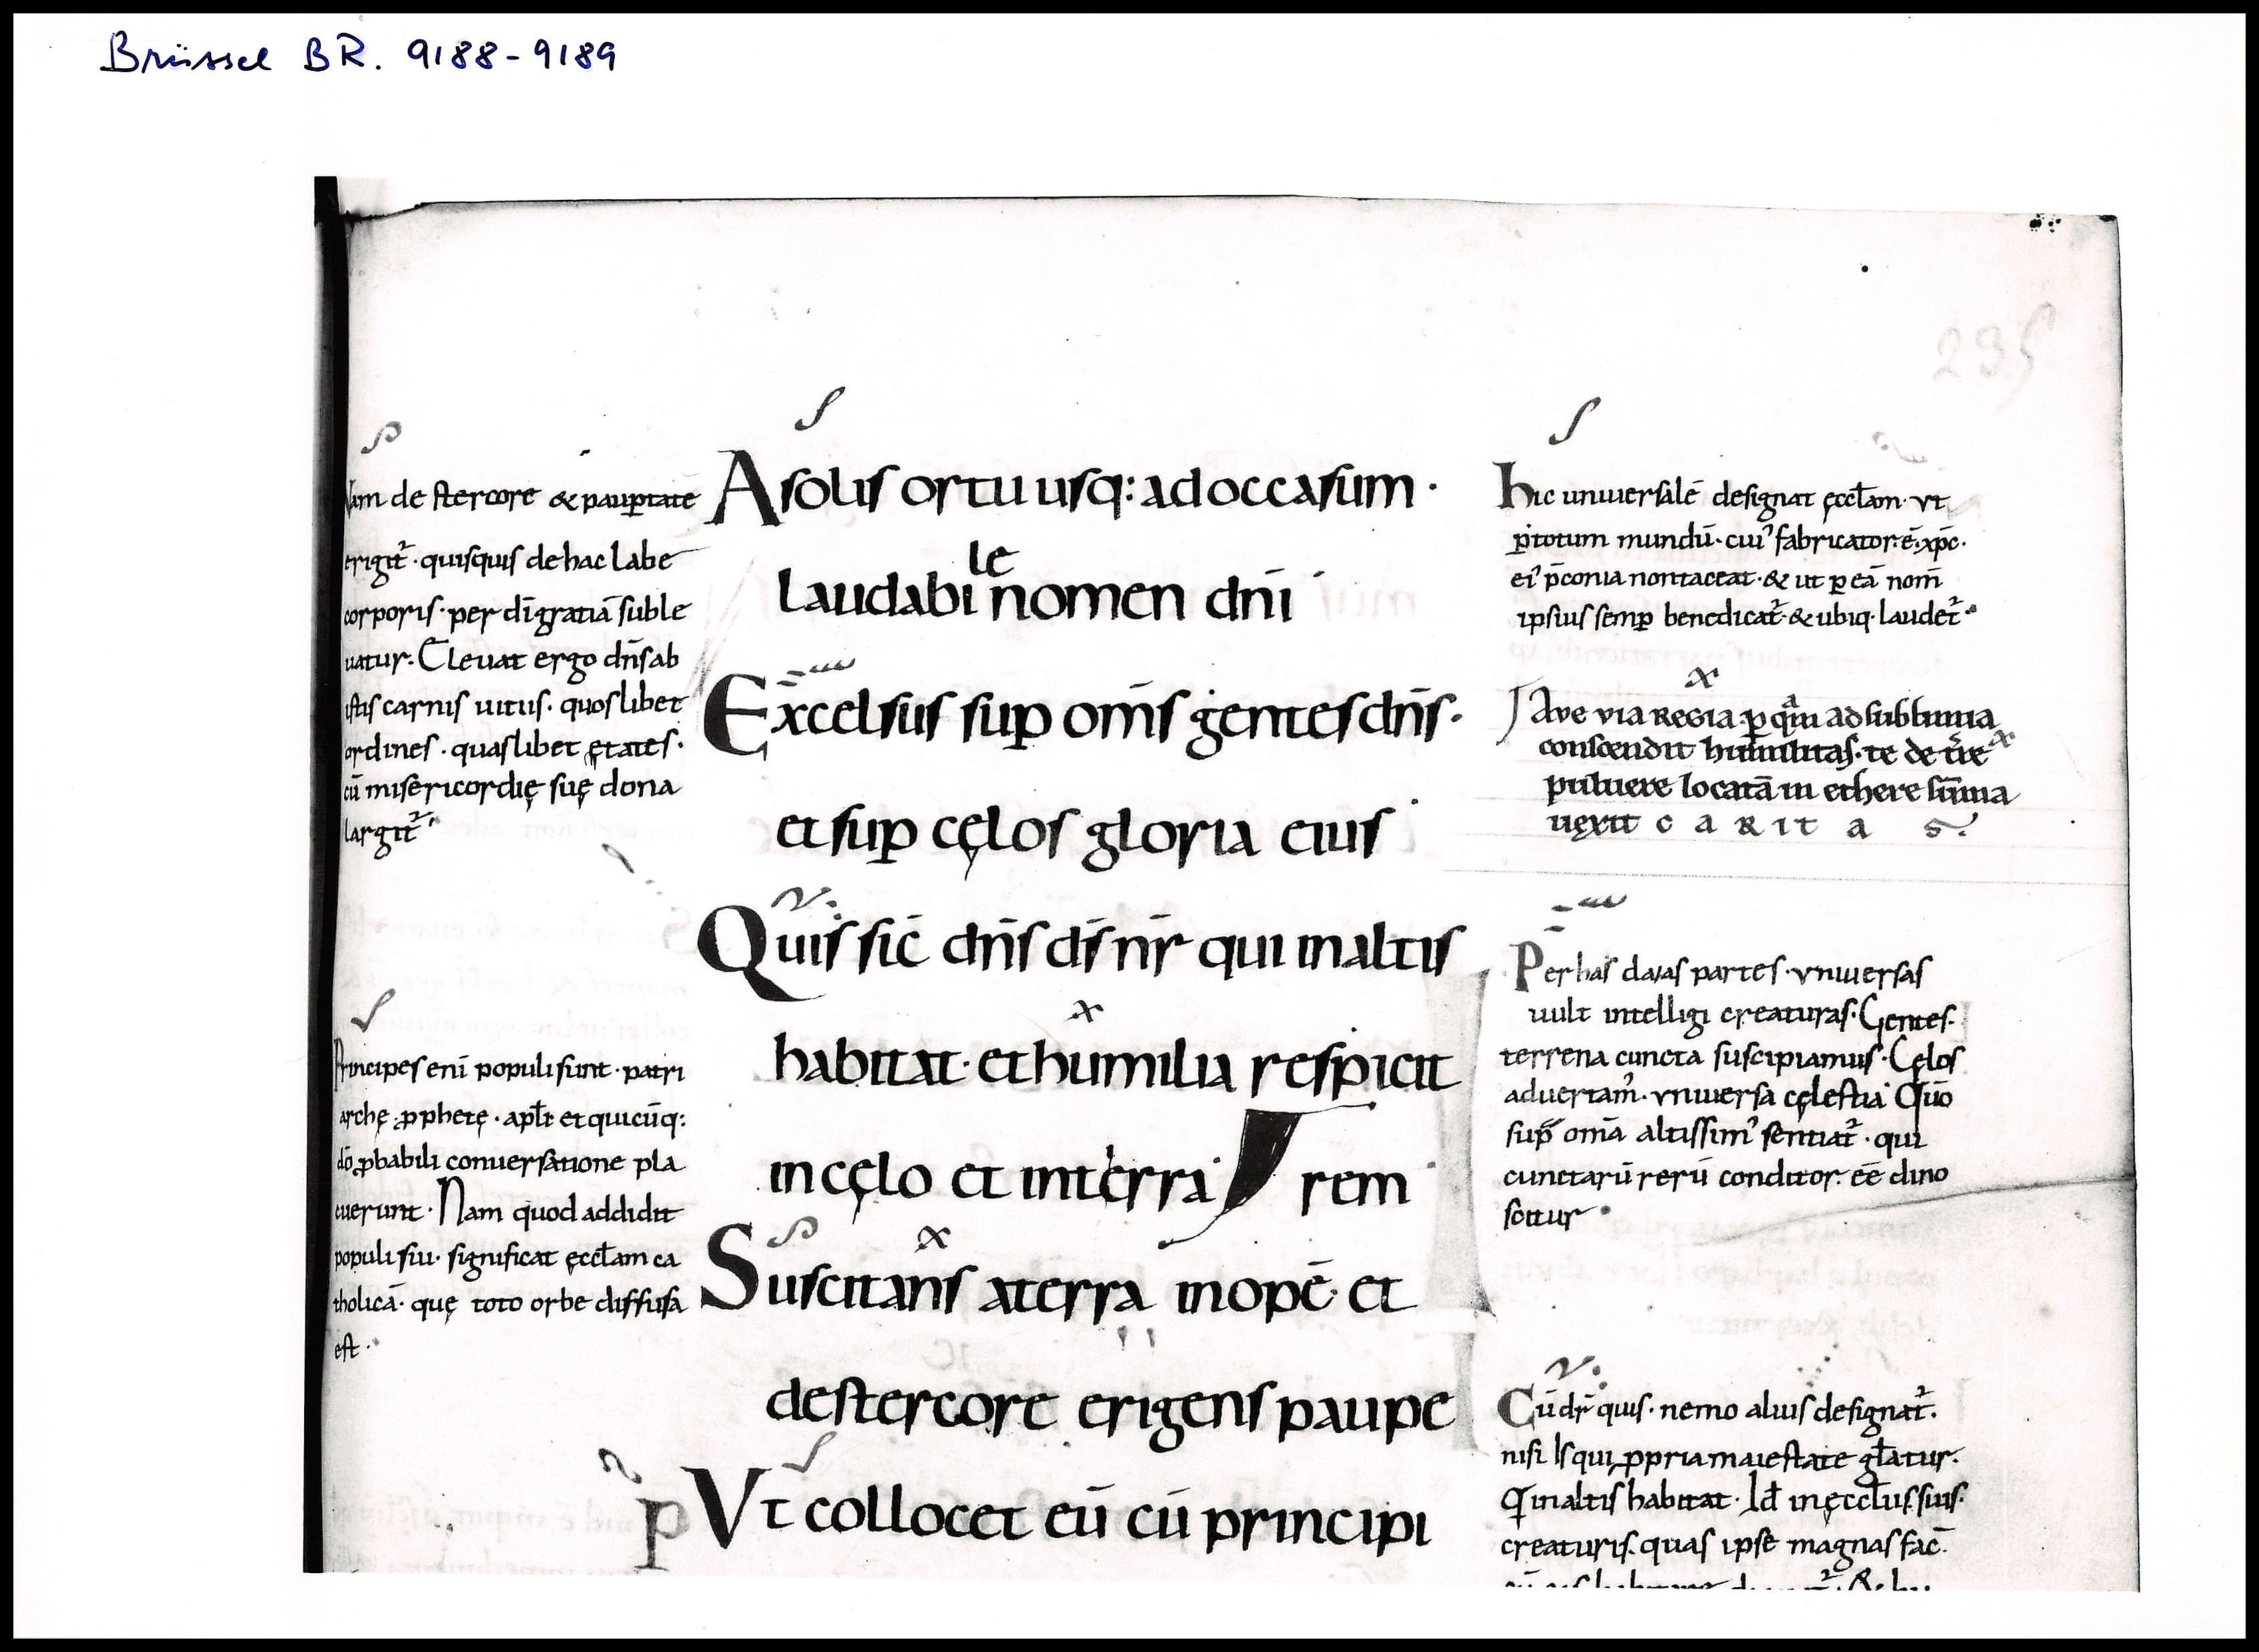 Brüssel BR. 9188-9189
235
Nam de stercore & paup̄tate
erigit᷑ · quisquis de hac labe
corporis · per dī gratiā suble
uatur. Eleuat ergo dn̄s ab
istis carnis uitiis · quoslibet
ordines · quaslibet ętates ·
cū misericordię suę dona
largit᷑
Principes enī populi sunt · patri
archę · ꝓphetę · apl̄i et quicūq:
dō ꝓbabili conuersatione pla
cuerunt · Nam quod addidit
populi sui · significat ęccl̄am ca
tholicā · quę toto orbe diffusa
est ·
A solis ortu usq: ad occasum ·
le
laudabi nomen dn̄i
Excelsus suꝑ om̄s gentes dn̄s ·
et suꝑ cęlos gloria eius
Quis sic̄ dn̄s ds̄ nr̄ qui in altis
habitat · et humilia respicit
in cęlo et in terra rem
Suscitans a terra inopē · et
de stercore erigens paupe
p Vt collocet eū cū principi
Hic uniuersalē designat ęccl̄am · vt
ꝑ totum mundū · cuiꝰ fabricator · ē · xp̄c ·
eiꝰ p̄conia non taceat · & ut ꝑ eā nom̄
ipsius semꝑ benedicat᷑ · & ubiq · laudet᷑
Ave via regia · ꝑ quā ad sublimia
conscendit humilitas · te de tr̄e
puluere locatā in ethere sūma
uęxit c a R i t a s
Per has duas partes · vniuersas
uult intelligi creaturas · Gentes ·
terrena cuncta suscipiamus · Cęlos
aduertamꝰ · vniuersa cęlestia Quō
sup̄ om̄a altissimꝰ sentiat᷑ · qui
cunctarū rerū conditor · ēē dino
scitur
Cū dr̄ quis · nemo alius designat᷑ ·
nisi Is qui ꝓpria maiestate gl̄atur ·
Q in altis habitat · Id̄ in ęccl̄iis suis ·
creaturis · quas ipse magnas fac̄ ·